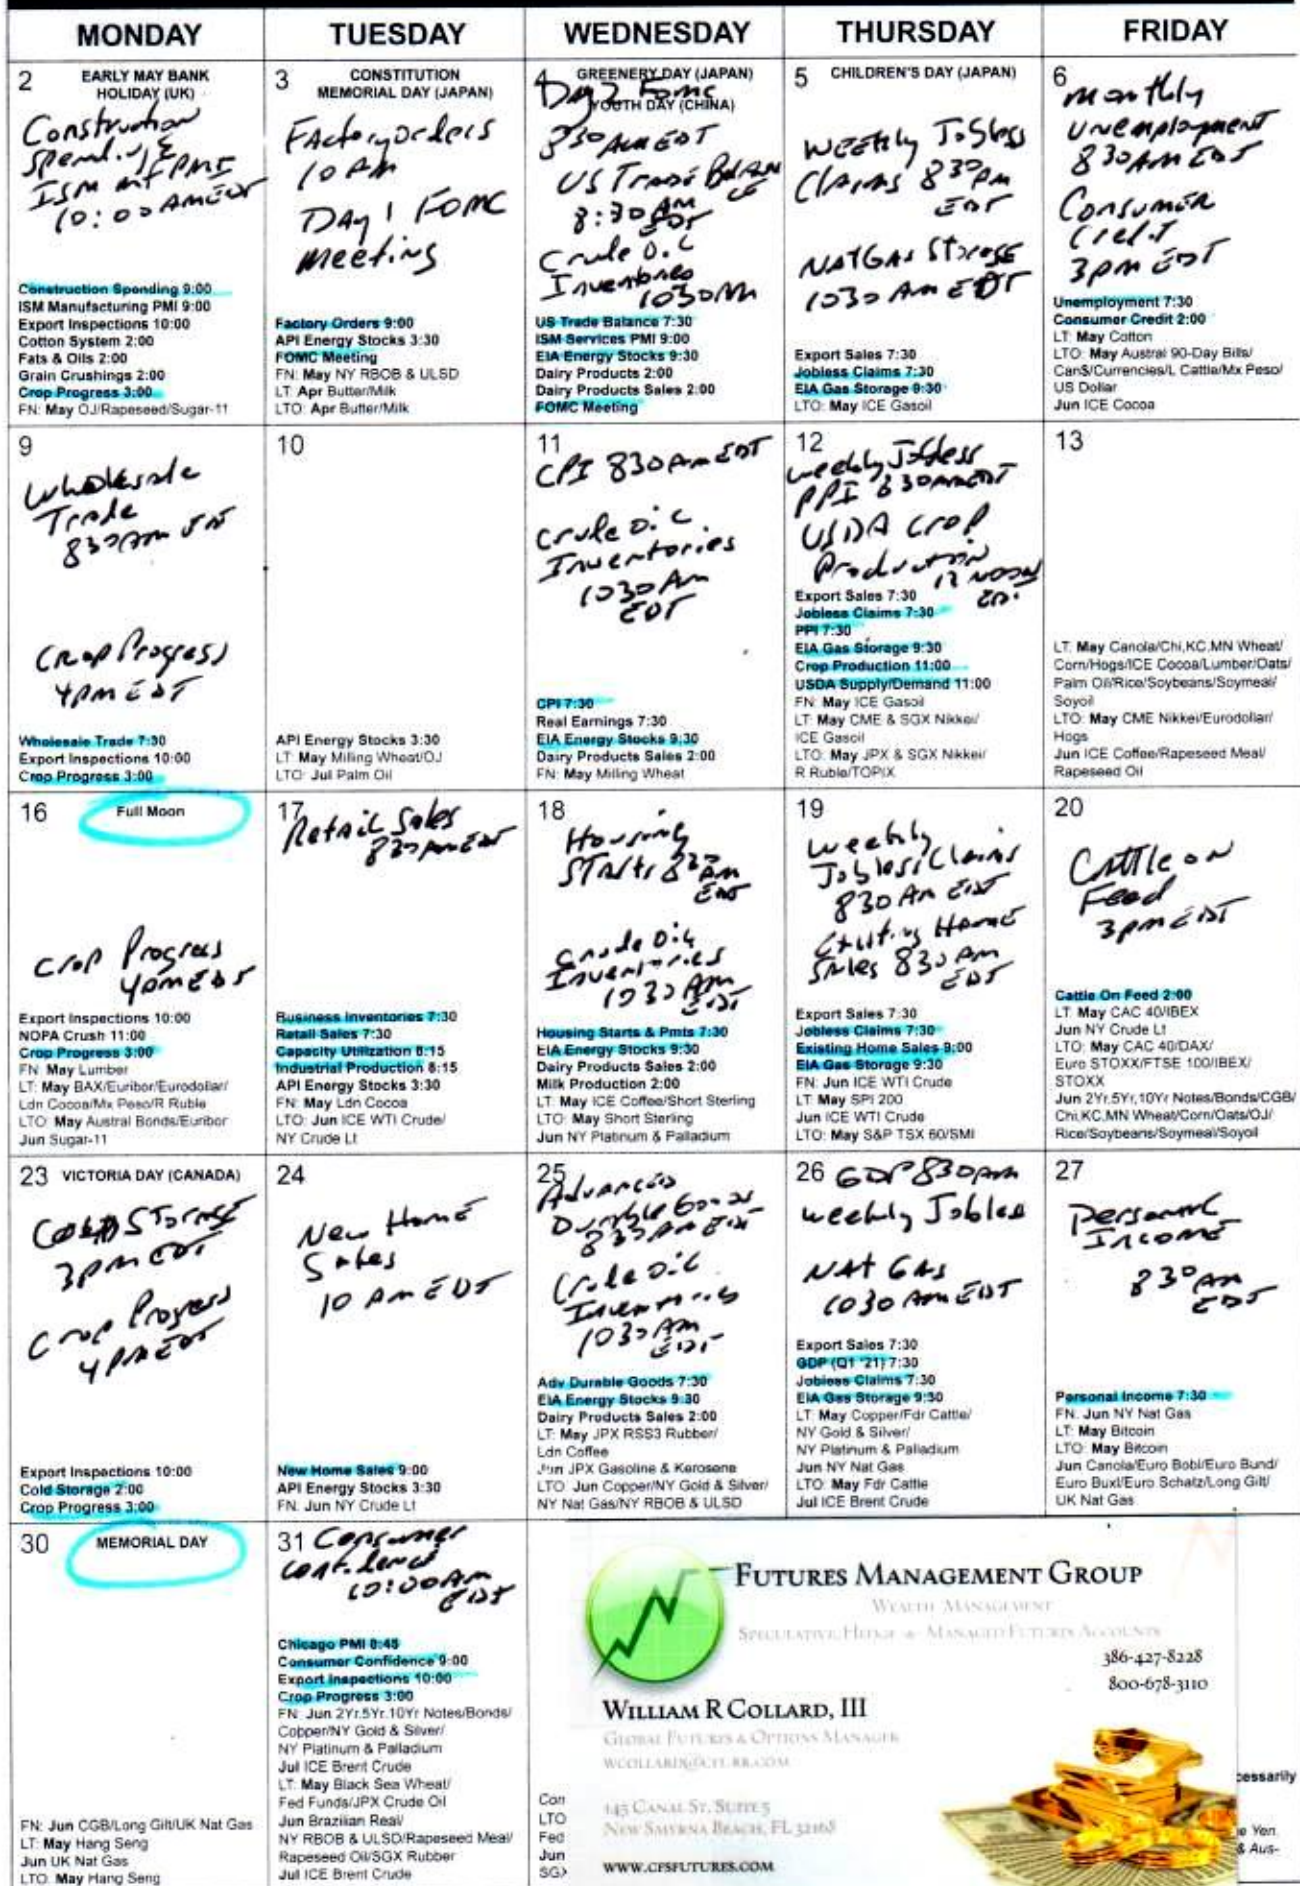 MONDAY
TUESDAY
WEDNESDAY
THURSDAY
FRIDAY
2 EARLY MAY BANK
HOLIDAY (UK)
Construction
Spending &
ISM mf PMI
10:00 AM EDT
Construction Spending 9:00
ISM Manufacturing PMI 9:00
Export Inspections 10:00
Cotton System 2:00
Fats & Oils 2:00
Grain Crushings 2:00
Crop Progress 3:00
FN: May OJ/Rapeseed/Sugar-11
3 CONSTITUTION
MEMORIAL DAY (JAPAN)
Factory orders
10 AM
DAY 1 FOMC
meeting
Factory Orders 9:00
API Energy Stocks 3:30
FOMC Meeting
FN: May NY RBOB & ULSD
LT: Apr Butter/Milk
LTO: Apr Butter/Milk
4 GREENERY DAY (JAPAN)
Day 2 FOMC
YOUTH DAY (CHINA)
830 AM EDT
US Trade Balance
8:30 AM
EDT
Crude Oil
Inventories
1030 AM
US Trade Balance 7:30
ISM Services PMI 9:00
EIA Energy Stocks 9:30
Dairy Products 2:00
Dairy Products Sales 2:00
FOMC Meeting
5 CHILDREN'S DAY (JAPAN)
Weekly Jobless
Claims 830 AM
EDT
NATGAS Storage
1030 AM EDT
Export Sales 7:30
Jobless Claims 7:30
EIA Gas Storage 9:30
LTO: May ICE Gasoil
6
monthly
unemployment
830 AM EDT
Consumer
Credit
3pm EDT
Unemployment 7:30
Consumer Credit 2:00
LT: May Cotton
LTO: May Austral 90-Day Bills/
Can$/Currencies/L Cattle/Mx Peso/
US Dollar
Jun ICE Cocoa
9
Wholesale
Trade
830 am
Crop Progress
4pm EDT
Wholesale Trade 7:30
Export Inspections 10:00
Crop Progress 3:00
10
API Energy Stocks 3:30
LT: May Milling Wheat/OJ
LTO: Jul Palm Oil
11
CPI 830 AM EDT
Crude Oil
Inventories
1030 AM
EDT
CPI 7:30
Real Earnings 7:30
EIA Energy Stocks 9:30
Dairy Products Sales 2:00
FN: May Milling Wheat
12
weekly Jobless
PPI 830 AM EDT
USDA Crop
Production
12 NOON
EDT
Export Sales 7:30
Jobless Claims 7:30
PPI 7:30
EIA Gas Storage 9:30
Crop Production 11:00
USDA Supply/Demand 11:00
FN: May ICE Gasoil
LT: May CME & SGX Nikkei/
ICE Gasoil
LTO: May JPX & SGX Nikkei/
R Ruble/TOPIX
13
LT: May Canola/Chi,KC,MN Wheat/
Corn/Hogs/ICE Cocoa/Lumber/Oats/
Palm Oil/Rice/Soybeans/Soymeal/
Soyoil
LTO: May CME Nikkei/Eurodollar/
Hogs
Jun ICE Coffee/Rapeseed Meal/
Rapeseed Oil
16 Full Moon
Crop Progress
4pm EDT
Export Inspections 10:00
NOPA Crush 11:00
Crop Progress 3:00
FN: May Lumber
LT: May BAX/Euribor/Eurodollar/
Ldn Cocoa/Mx Peso/R Ruble
LTO: May Austral Bonds/Euribor
Jun Sugar-11
17
Retail Sales
830 AM EDT
Business Inventories 7:30
Retail Sales 7:30
Capacity Utilization 8:15
Industrial Production 8:15
API Energy Stocks 3:30
FN: May Ldn Cocoa
LTO: Jun ICE WTI Crude/
NY Crude Lt
18
Housing
Starts 830
AM
EDT
Crude Oil
Inventories
1030 AM
EDT
Housing Starts & Pmts 7:30
EIA Energy Stocks 9:30
Dairy Products Sales 2:00
Milk Production 2:00
LT: May ICE Coffee/Short Sterling
LTO: May Short Sterling
Jun NY Platinum & Palladium
19
weekly
Jobless Claims
830 AM EDT
Existing Home
Sales 830 AM
EDT
Export Sales 7:30
Jobless Claims 7:30
Existing Home Sales 9:00
EIA Gas Storage 9:30
FN: Jun ICE WTI Crude
LT: May SPI 200
Jun ICE WTI Crude
LTO: May S&P TSX 60/SMI
20
Cattle on
Feed
3pm EDT
Cattle On Feed 2:00
LT: May CAC 40/IBEX
Jun NY Crude Lt
LTO: May CAC 40/DAX/
Euro STOXX/FTSE 100/IBEX/
STOXX
Jun 2Yr,5Yr,10Yr Notes/Bonds/CGB/
Chi,KC,MN Wheat/Corn/Oats/OJ/
Rice/Soybeans/Soymeal/Soyoil
23 VICTORIA DAY (CANADA)
Cold Storage
3pm EDT
Crop Progress
4pm EDT
Export Inspections 10:00
Cold Storage 2:00
Crop Progress 3:00
24
New Home
Sales
10 AM EDT
New Home Sales 9:00
API Energy Stocks 3:30
FN: Jun NY Crude Lt
25
Advanced
Durable Goods
830 AM EDT
Crude Oil
Inventories
1030 AM
EDT
Adv Durable Goods 7:30
EIA Energy Stocks 9:30
Dairy Products Sales 2:00
LT: May JPX RSS3 Rubber/
Ldn Coffee
Jun JPX Gasoline & Kerosene
LTO: Jun Copper/NY Gold & Silver/
NY Nat Gas/NY RBOB & ULSD
26 GDP 830am
weekly Jobless
NAT GAS
1030 AM EDT
Export Sales 7:30
GDP (Q1 '21) 7:30
Jobless Claims 7:30
EIA Gas Storage 9:30
LT: May Copper/Fdr Cattle/
NY Gold & Silver/
NY Platinum & Palladium
Jun NY Nat Gas
LTO: May Fdr Cattle
Jul ICE Brent Crude
27
Personal
Income
830 am
EDT
Personal Income 7:30
FN: Jun NY Nat Gas
LT: May Bitcoin
LTO: May Bitcoin
Jun Canola/Euro Bobl/Euro Bund/
Euro Buxl/Euro Schatz/Long Gilt/
UK Nat Gas
30 MEMORIAL DAY
FN: Jun CGB/Long Gilt/UK Nat Gas
LT: May Hang Seng
Jun UK Nat Gas
LTO: May Hang Seng
31 Consumer
Confidence
10:00 AM
EDT
Chicago PMI 8:45
Consumer Confidence 9:00
Export Inspections 10:00
Crop Progress 3:00
FN: Jun 2Yr,5Yr,10Yr Notes/Bonds/
Copper/NY Gold & Silver/
NY Platinum & Palladium
Jul ICE Brent Crude
LT: May Black Sea Wheat/
Fed Funds/JPX Crude Oil
Jun Brazilian Real/
NY RBOB & ULSD/Rapeseed Meal/
Rapeseed Oil/SGX Rubber
Jul ICE Brent Crude
FUTURES MANAGEMENT GROUP
WEALTH MANAGEMENT
SPECULATIVE, HEDGE & MANAGED FUTURES ACCOUNTS
386-427-8228
800-678-3110
WILLIAM R COLLARD, III
GLOBAL FUTURES & OPTIONS MANAGER
145 CANAL ST, SUITE 5
NEW SMYRNA BEACH, FL 32168
WWW.CFSFUTURES.COM
Con
LTO
Fed
Jun
SGX
cessarily
e Yen.
& Aus-